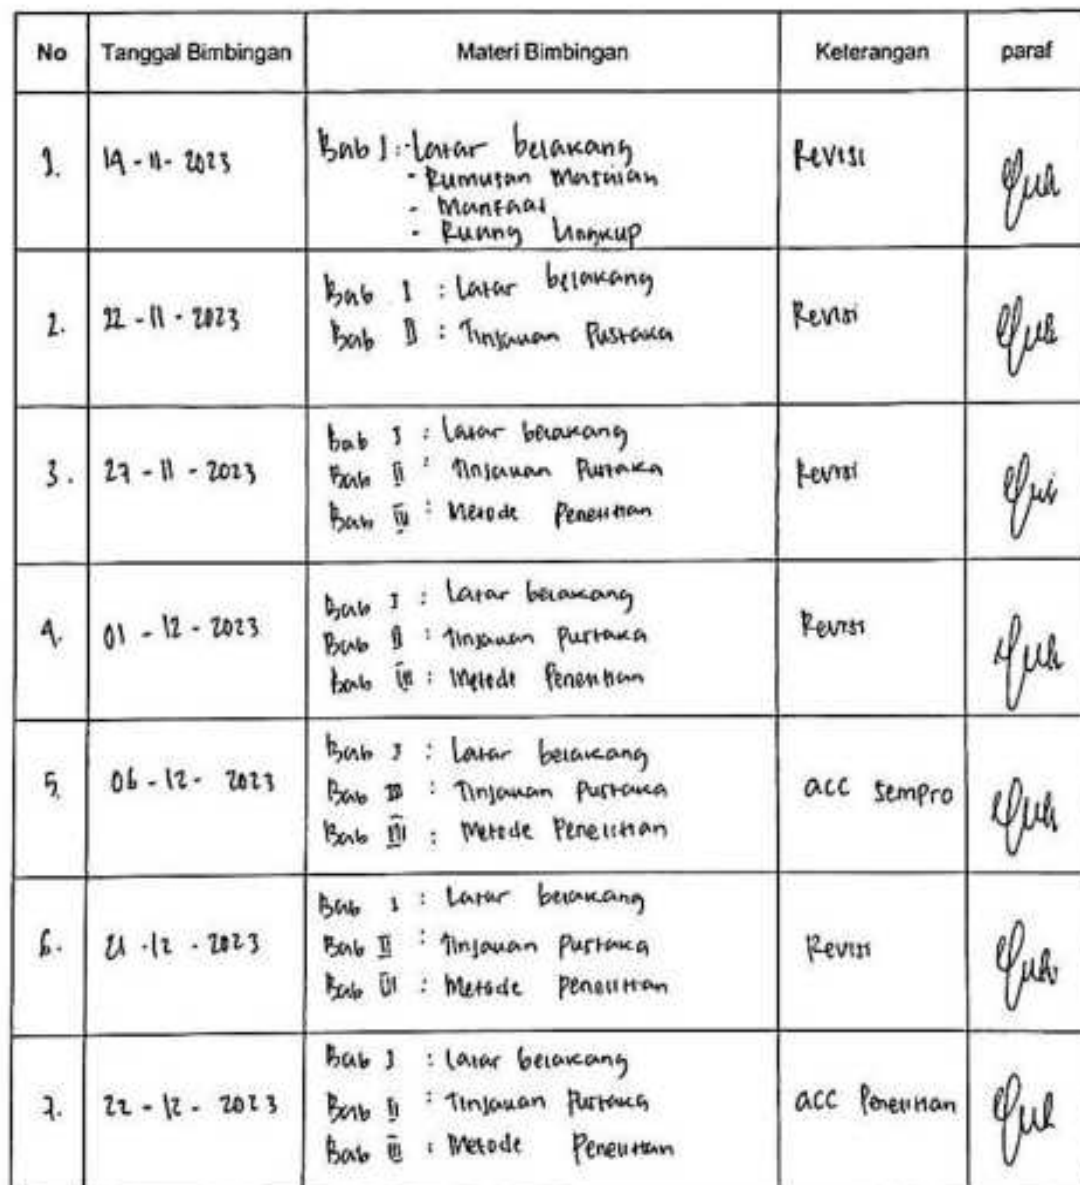 No Tanggal Bimbingan Materi Bimbingan Keterangan paraf
1. 14-11-2023 Bab I: - Latar belakang Revisi
- Rumusan Masalah
- Manfaat
- Ruang Lingkup
2. 22-11-2023 Bab I : Latar belakang Revisi
Bab II : Tinjauan Pustaka
3. 27-11-2023 Bab I : Latar belakang Revisi
Bab II : Tinjauan Pustaka
Bab III : Metode Penelitian
4. 01-12-2023 Bab I : Latar belakang Revisi
Bab II : Tinjauan Pustaka
Bab III : Metode Penelitian
5. 06-12-2023 Bab I : Latar belakang acc sempro
Bab II : Tinjauan Pustaka
Bab III : Metode Penelitian
6. 21-12-2023 Bab I : Latar belakang Revisi
Bab II : Tinjauan Pustaka
Bab III : Metode Penelitian
7. 22-12-2023 Bab I : Latar belakang acc Penelitian
Bab II : Tinjauan Pustaka
Bab III : Metode Penelitian